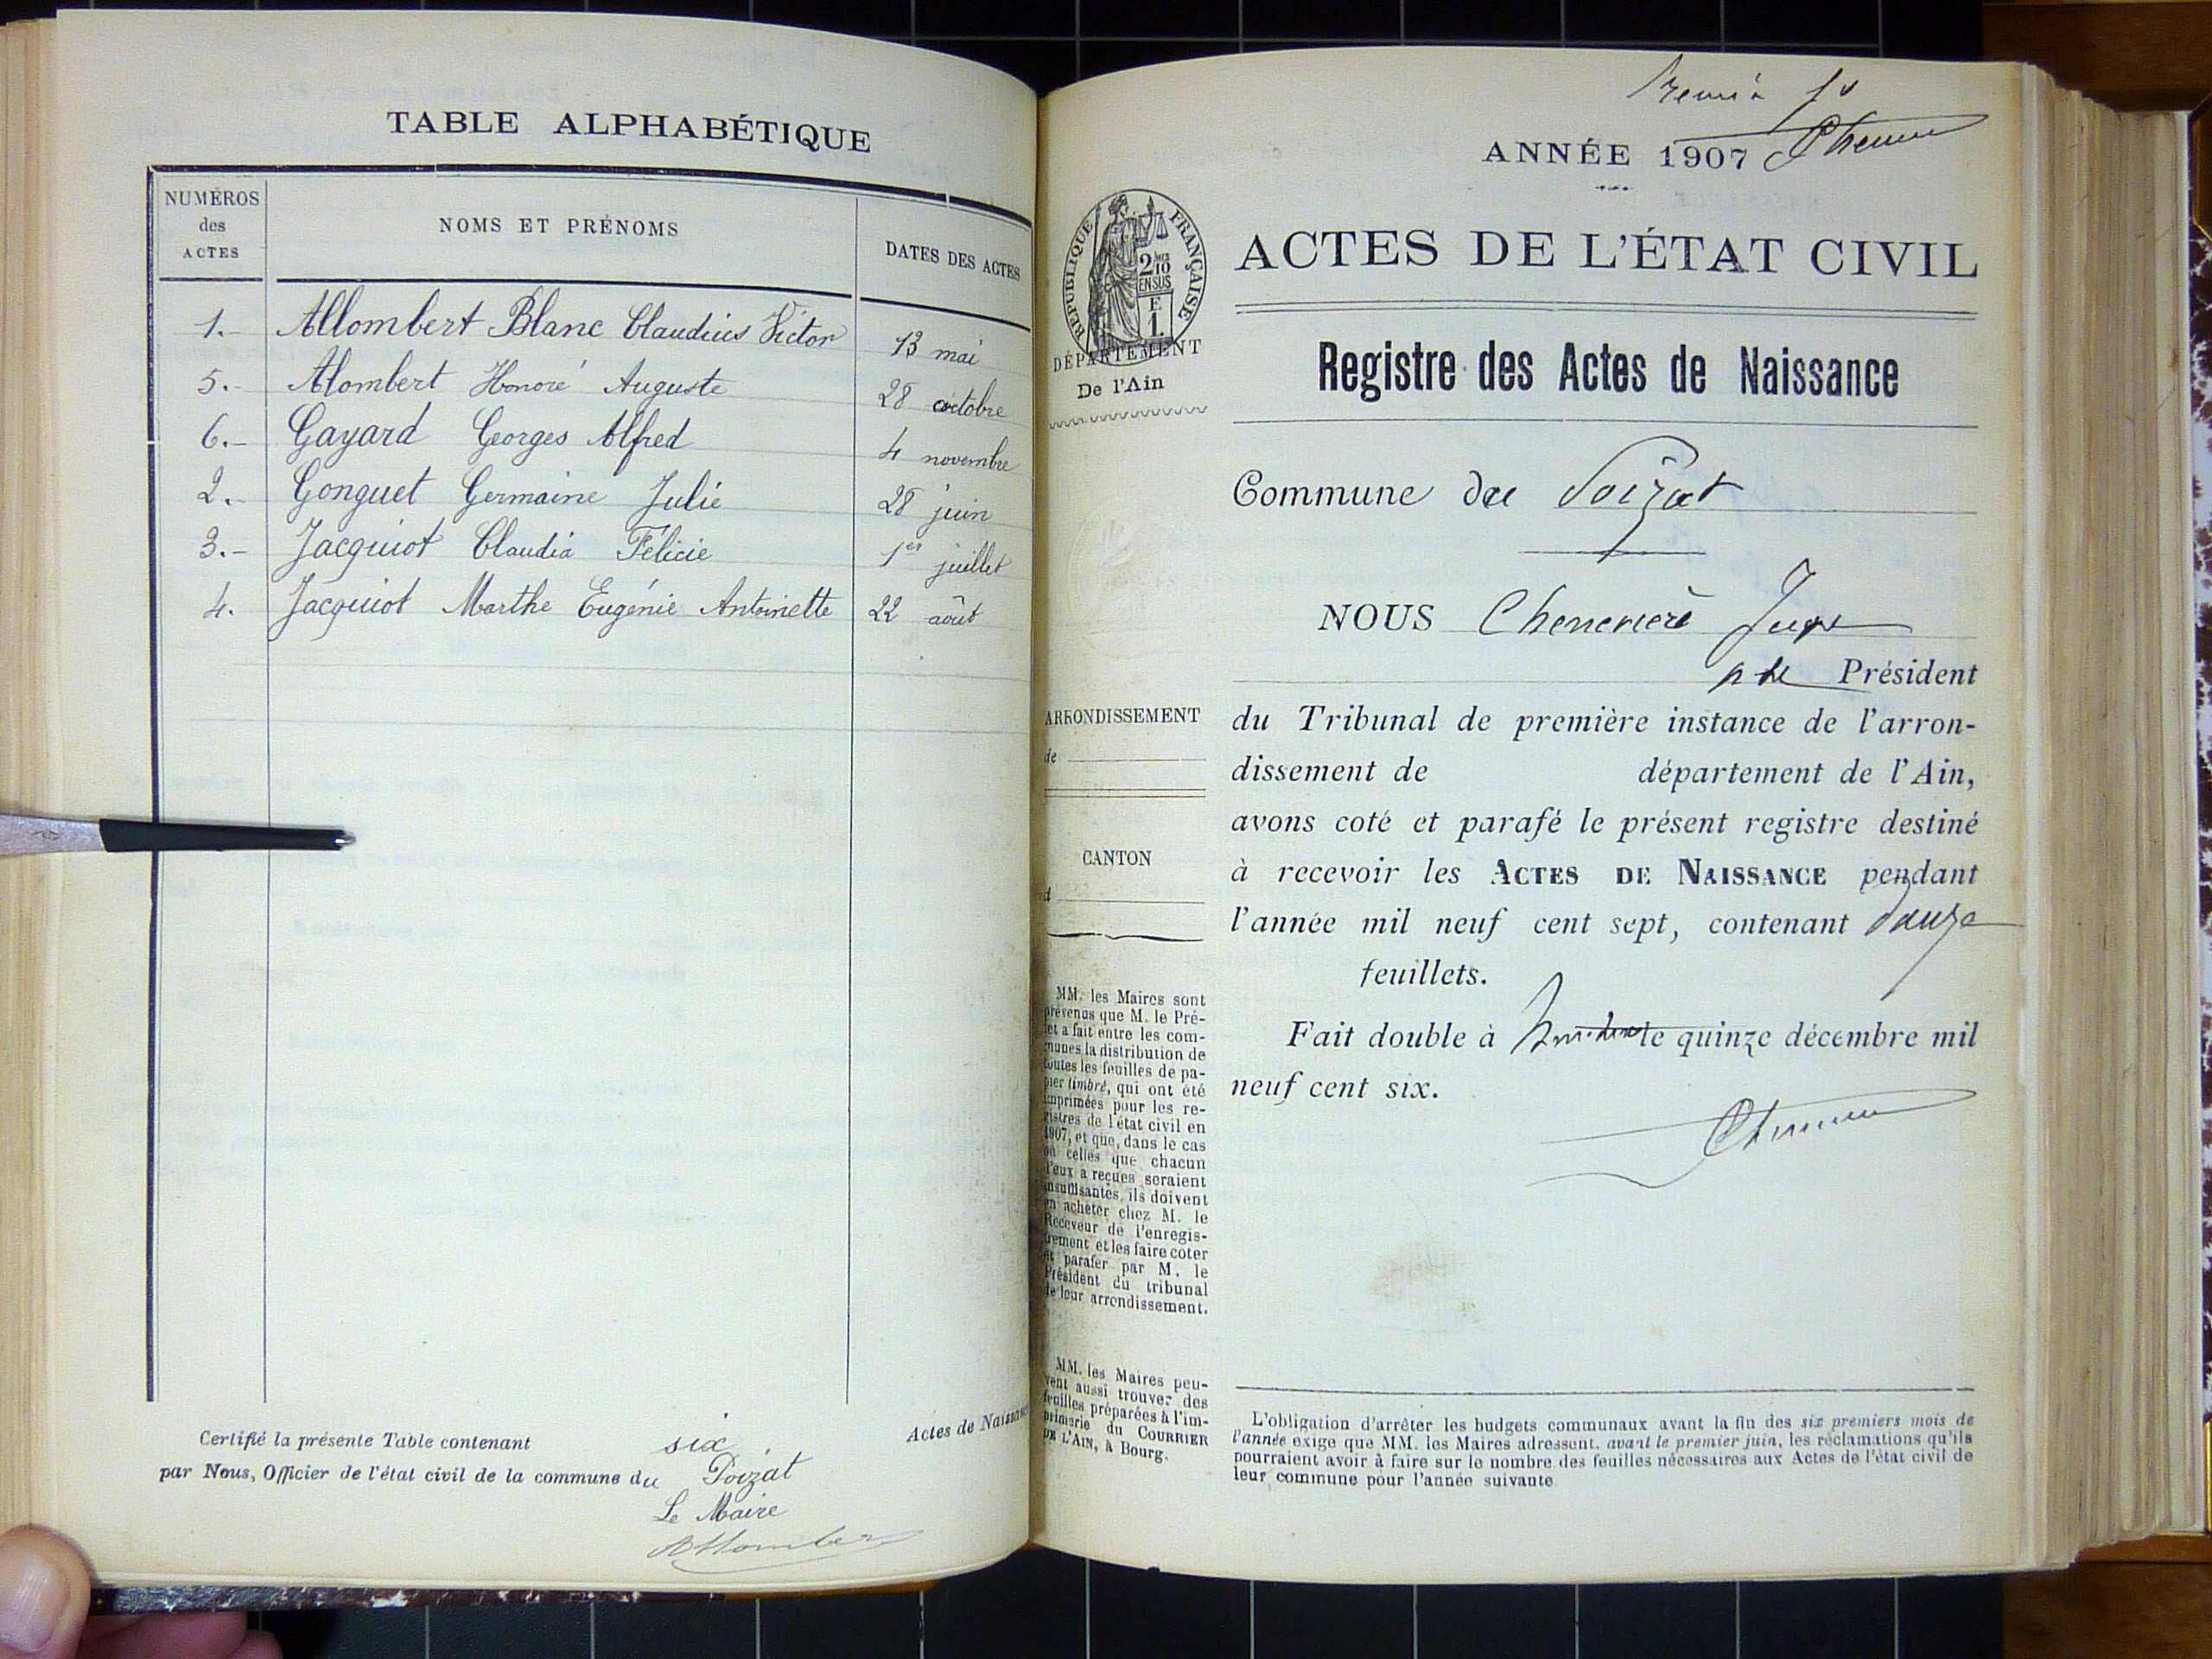 TABLE ALPHABÉTIQUE
NUMÉROS
des
ACTES
NOMS ET PRÉNOMS
DATES DES ACTES
1.- Allombert Blanc Claudius Victor 13 mai
5.- Alombert Honoré Auguste 28 octobre
6.- Gayard Georges Alfred 4 novembre
2.- Gonguet Germaine Julie 28 juin
3.- Jacquiot Claudia Félicie 1er juillet
4. Jacquiot Marthe Eugénie Antoinette 22 août
Certifié la présente Table contenant six
par Nous, Officier de l'état civil de la commune du Poizat
Le Maire
Actes de Naissance
ANNÉE 1907
RÉPUBLIQUE FRANÇAISE
2
10
EN SUS
E
1.
DÉPARTEMENT
De l'Ain
ACTES DE L'ÉTAT CIVIL
Registre des Actes de Naissance
Commune du Poizat
NOUS Juge
Président
du Tribunal de première instance de l'arron-
dissement de département de l'Ain,
avons coté et parafé le présent registre destiné
à recevoir les ACTES DE NAISSANCE pendant
l'année mil neuf cent sept, contenant douze
feuillets.
Fait double à le quinze décembre mil
neuf cent six.
ARRONDISSEMENT
de
CANTON
d
MM. les Maires sont
prévenus que M. le Pré-
fet a fait entre les com-
munes la distribution de
toutes les feuilles de pa-
pier timbré, qui ont été
imprimées pour les re-
gistres de l'état civil en
1907, et que, dans le cas
où celles que chacun
d'eux a reçues seraient
insuffisantes, ils doivent
en acheter chez M. le
Receveur de l'enregis-
trement et les faire coter
et parafer par M. le
Président du tribunal
de leur arrondissement.
MM. les Maires peu-
vent aussi trouver des
feuilles préparées à l'im-
primerie du COURRIER
DE L'AIN, à Bourg.
L'obligation d'arrêter les budgets communaux avant la fin des six premiers mois de
l'année exige que MM. les Maires adressent, avant le premier juin, les réclamations qu'ils
pourraient avoir à faire sur le nombre des feuilles nécessaires aux Actes de l'état civil de
leur commune pour l'année suivante